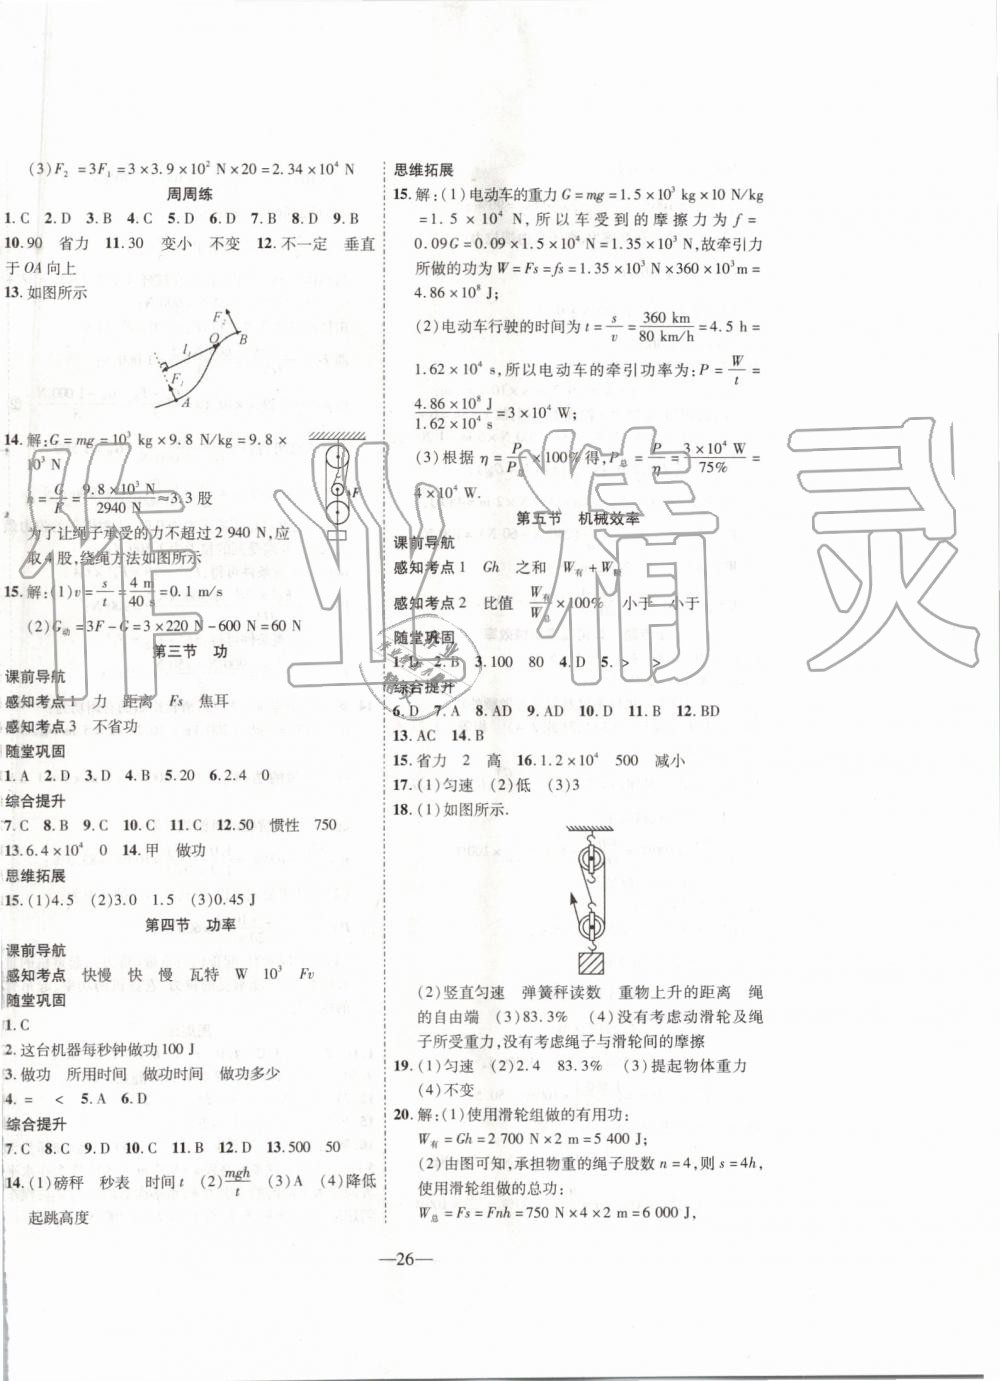 (3)F₂=3F₁=3×3.9×10² N×20=2.34×10⁴ N
周周练
1.C 2.D 3.B 4.C 5.D 6.B 7.B 8.D 9.B
10.90 省力 11.30 变小 不变 12.不一定 垂直
于OA向上
13.如图所示
F₂
O
B
l₁
F₁
A
14.解:G=mg=10³ kg×9.8 N/kg=9.8×
10³ N
n=G/F=9.8×10³ N/2940 N≈3.3股
F
为了让绳子承受的力不超过2 940 N,应
取4股,绕绳方法如图所示
15.解:(1)v=s/t=4 m/40 s=0.1 m/s
(2)G动=3F-G=3×220 N-600 N=60 N
第三节 功
课前导航
感知考点1 力 距离 Fs 焦耳
感知考点3 不省功
随堂巩固
1.A 2.D 3.D 4.B 5.20 6.2.4 0
综合提升
7.C 8.B 9.C 10.C 11.C 12.50 惯性 750
13.6.4×10⁴ 0 14.甲 做功
思维拓展
15.(1)4.5 (2)3.0 1.5 (3)0.45 J
第四节 功率
课前导航
感知考点 快慢 快 慢 瓦特 W 10³ Fv
随堂巩固
1.C
2.这台机器每秒钟做功100 J
3.做功 所用时间 做功时间 做功多少
4.= < 5.A 6.D
综合提升
7.C 8.C 9.D 10.C 11.B 12.D 13.500 50
14.(1)磅秤 秒表 时间t (2)mgh/t (3)A (4)降低
起跳高度
思维拓展
15.解:(1)电动车的重力G=mg=1.5×10³ kg×10 N/kg
=1.5×10⁴ N,所以车受到的摩擦力为f=
0.09G=0.09×1.5×10⁴ N=1.35×10³ N,故牵引力
所做的功为W=Fs=fs=1.35×10³ N×360×10³m=
4.86×10⁸ J;
(2)电动车行驶的时间为t=s/v=360 km/80 km/h=4.5 h=
1.62×10⁴ s,所以电动车的牵引功率为:P=W/t=
4.86×10⁸ J/1.62×10⁴ s=3×10⁴ W;
(3)根据η=P/P总×100%得,P总=P/η=3×10⁴ W/75%=
4×10⁴ W.
第五节 机械效率
课前导航
感知考点1 Gh 之和 W有+W额
感知考点2 比值 W有/W总×100% 小于 小于
随堂巩固
1.D 2.B 3.100 80 4.D 5.> >
综合提升
6.D 7.A 8.AD 9.AD 10.D 11.B 12.BD
13.AC 14.B
15.省力 2 高 16.1.2×10⁴ 500 减小
17.(1)匀速 (2)低 (3)3
18.(1)如图所示.
(2)竖直匀速 弹簧秤读数 重物上升的距离 绳
的自由端 (3)83.3% (4)没有考虑动滑轮及绳
子所受重力,没有考虑绳子与滑轮间的摩擦
19.(1)匀速 (2)2.4 83.3% (3)提起物体重力
(4)不变
20.解:(1)使用滑轮组做的有用功:
W有=Gh=2 700 N×2 m=5 400 J;
(2)由图可知,承担物重的绳子股数n=4,则s=4h,
使用滑轮组做的总功:
W总=Fs=Fnh=750 N×4×2 m=6 000 J,
—26—
作业精灵